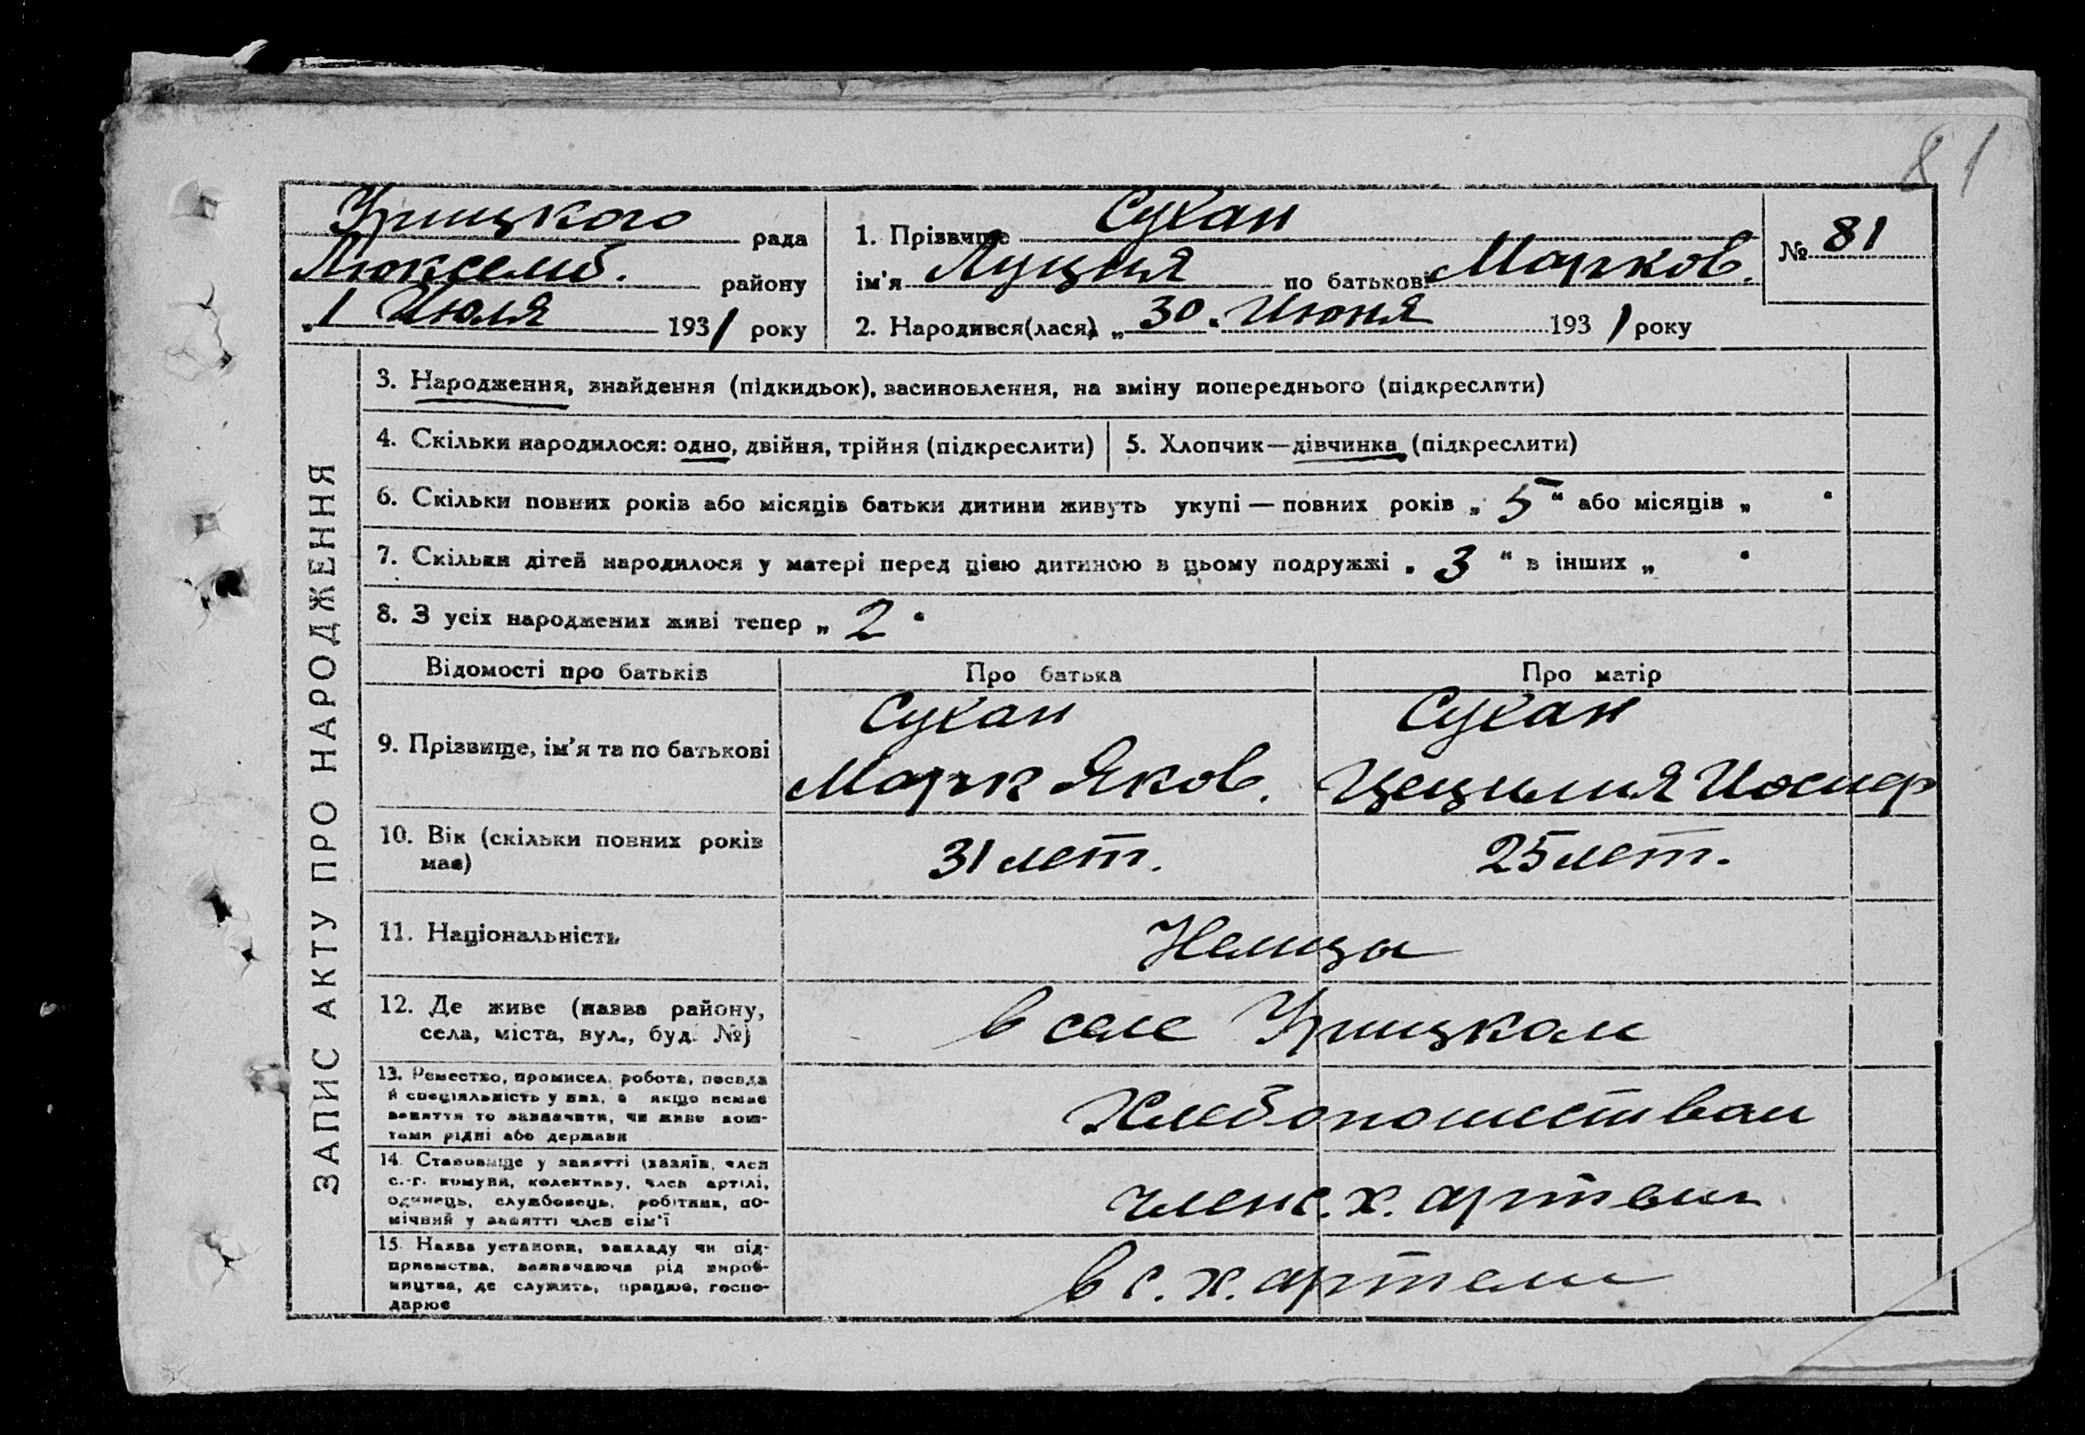 81
Урицкого рада
Люксемб. району
„1 Июля 1931 року
1. Прізвище Сухан
ім'я Луция по батькові Марков.
№ 81
2. Народився(лася) „30" Июня 1931 року
ЗАПИС АКТУ ПРО НАРОДЖЕННЯ
3. Народження, знайдення (підкидьок), засиновлення, на зміну попереднього (підкреслити)
4. Скільки народилося: одно, двійня, трійня (підкреслити)
5. Хлопчик—дівчинка (підкреслити)
6. Скільки повних років або місяців батьки дитини живуть укупі — повних років „5" або місяців „ "
7. Скільки дітей народилося у матері перед цією дитиною в цьому подружжі „3" в інших „ "
8. З усіх народжених живі тепер „2"
Відомості про батьків
Про батька
Про матір
9. Прізвище, ім'я та по батькові
Сухан
Марк Яков.
Сухан
Цецилия Иосиф
10. Вік (скільки повних років
має)
31 лет.
25 лет.
11. Національність
Немцы
12. Де живе (назва району,
села, міста, вул., буд. №)
в селе Урицком
13. Ремество, промисел, робота, посада
й спеціяльність у них, а якщо немає
заняття то зазначити, чи живе кош-
тами рідні або держави
Хлебопашеством
14. Становище у занятті (хазяїн, член
с.-г. комуни, колективу, член артілі,
одинець, службовець, робітник, по-
мічний у занятті член сім'ї
член с. х. артели
15. Назва установи, закладу чи під-
приємства, зазначаючи рід вироб-
ництва, де служить, працює, госпо-
дарює
в с. х. артели